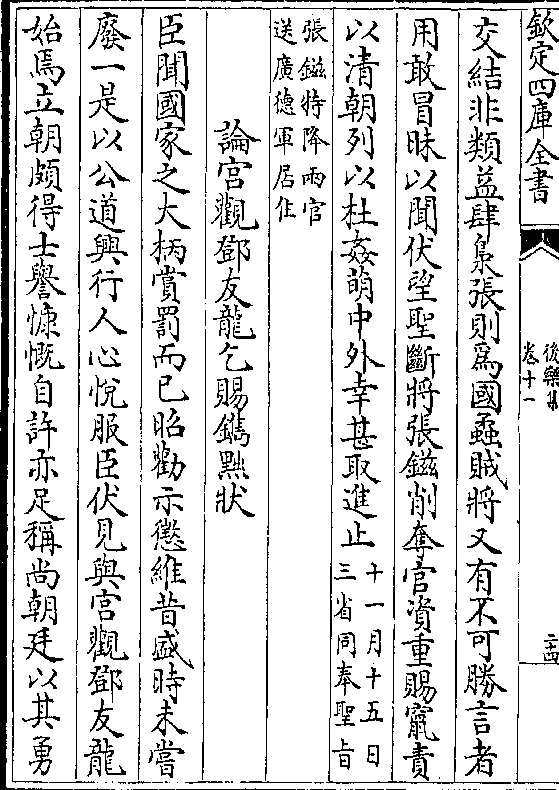 欽定四庫全書
後樂集
卷十一
二十四
交結非類益肆梟張則為國蟊賊將又有不可勝言者
用敢冒昧以聞伏望聖斷將張鎡削奪官資重賜竄責
以清朝列以杜姦萌中外幸甚取進止
十一月十五日
三省同奉聖旨
張鎡特降兩官
送廣德軍居住
論宮觀鄧友龍乞賜鐫黜狀
臣聞國家之大柄賞罰而已昭勸示懲維昔盛時未嘗
廢一是以公道興行人心悅服臣伏見與宮觀鄧友龍
始焉立朝頗得士譽慷慨自許亦足稱尚朝廷以其勇